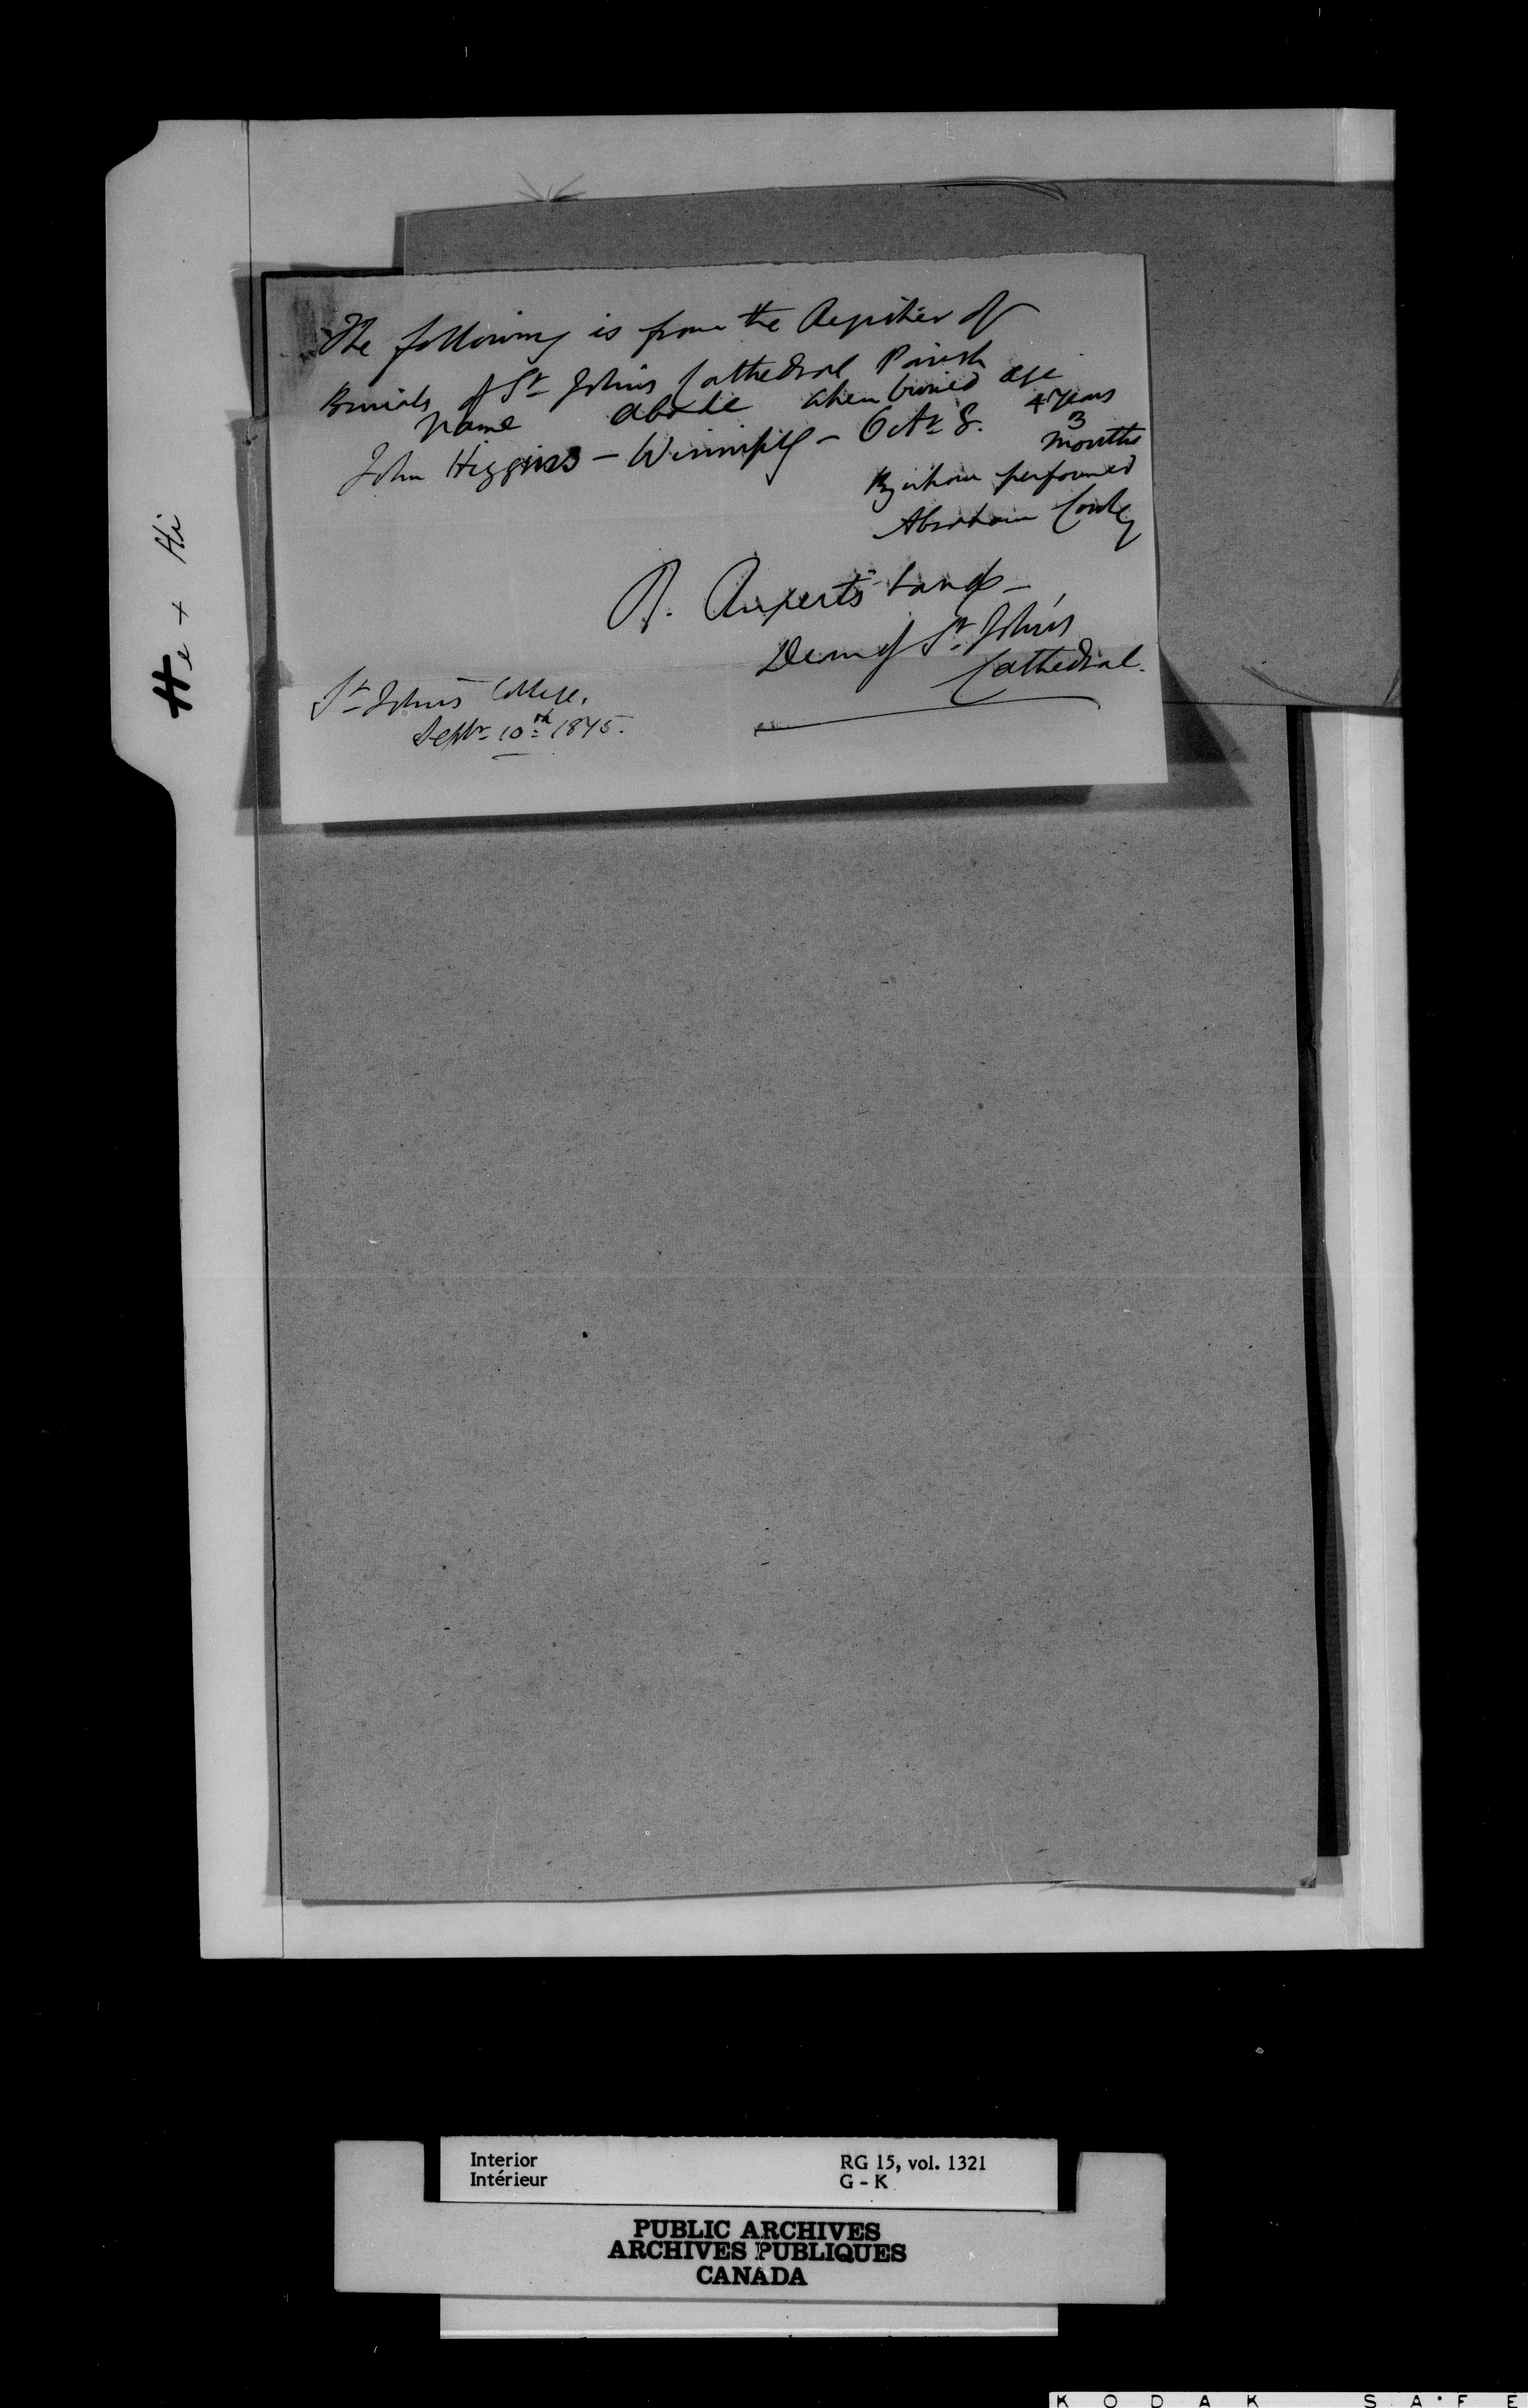 The following is from the Register of
Burials of St John's Cathedral Parish
Name abode when buried age
John Higgins - Winnipeg - Octr 8. 4 years
3
months
By whom performed
Abraham Cowley
R. Rupert's Land -
Dean of St John's
Cathedral.
St John's College,
Septr 10th 1875.
He + Hi
Interior RG 15, vol. 1321
Intérieur G - K
PUBLIC ARCHIVES
ARCHIVES PUBLIQUES
CANADA
KODAK SAFE